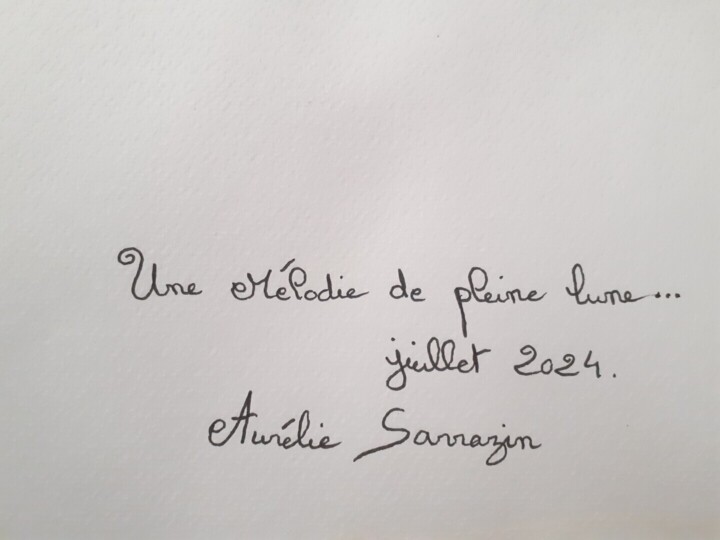 Une Mélodie de pleine lune...
juillet 2024.
Aurélie Sarrazin